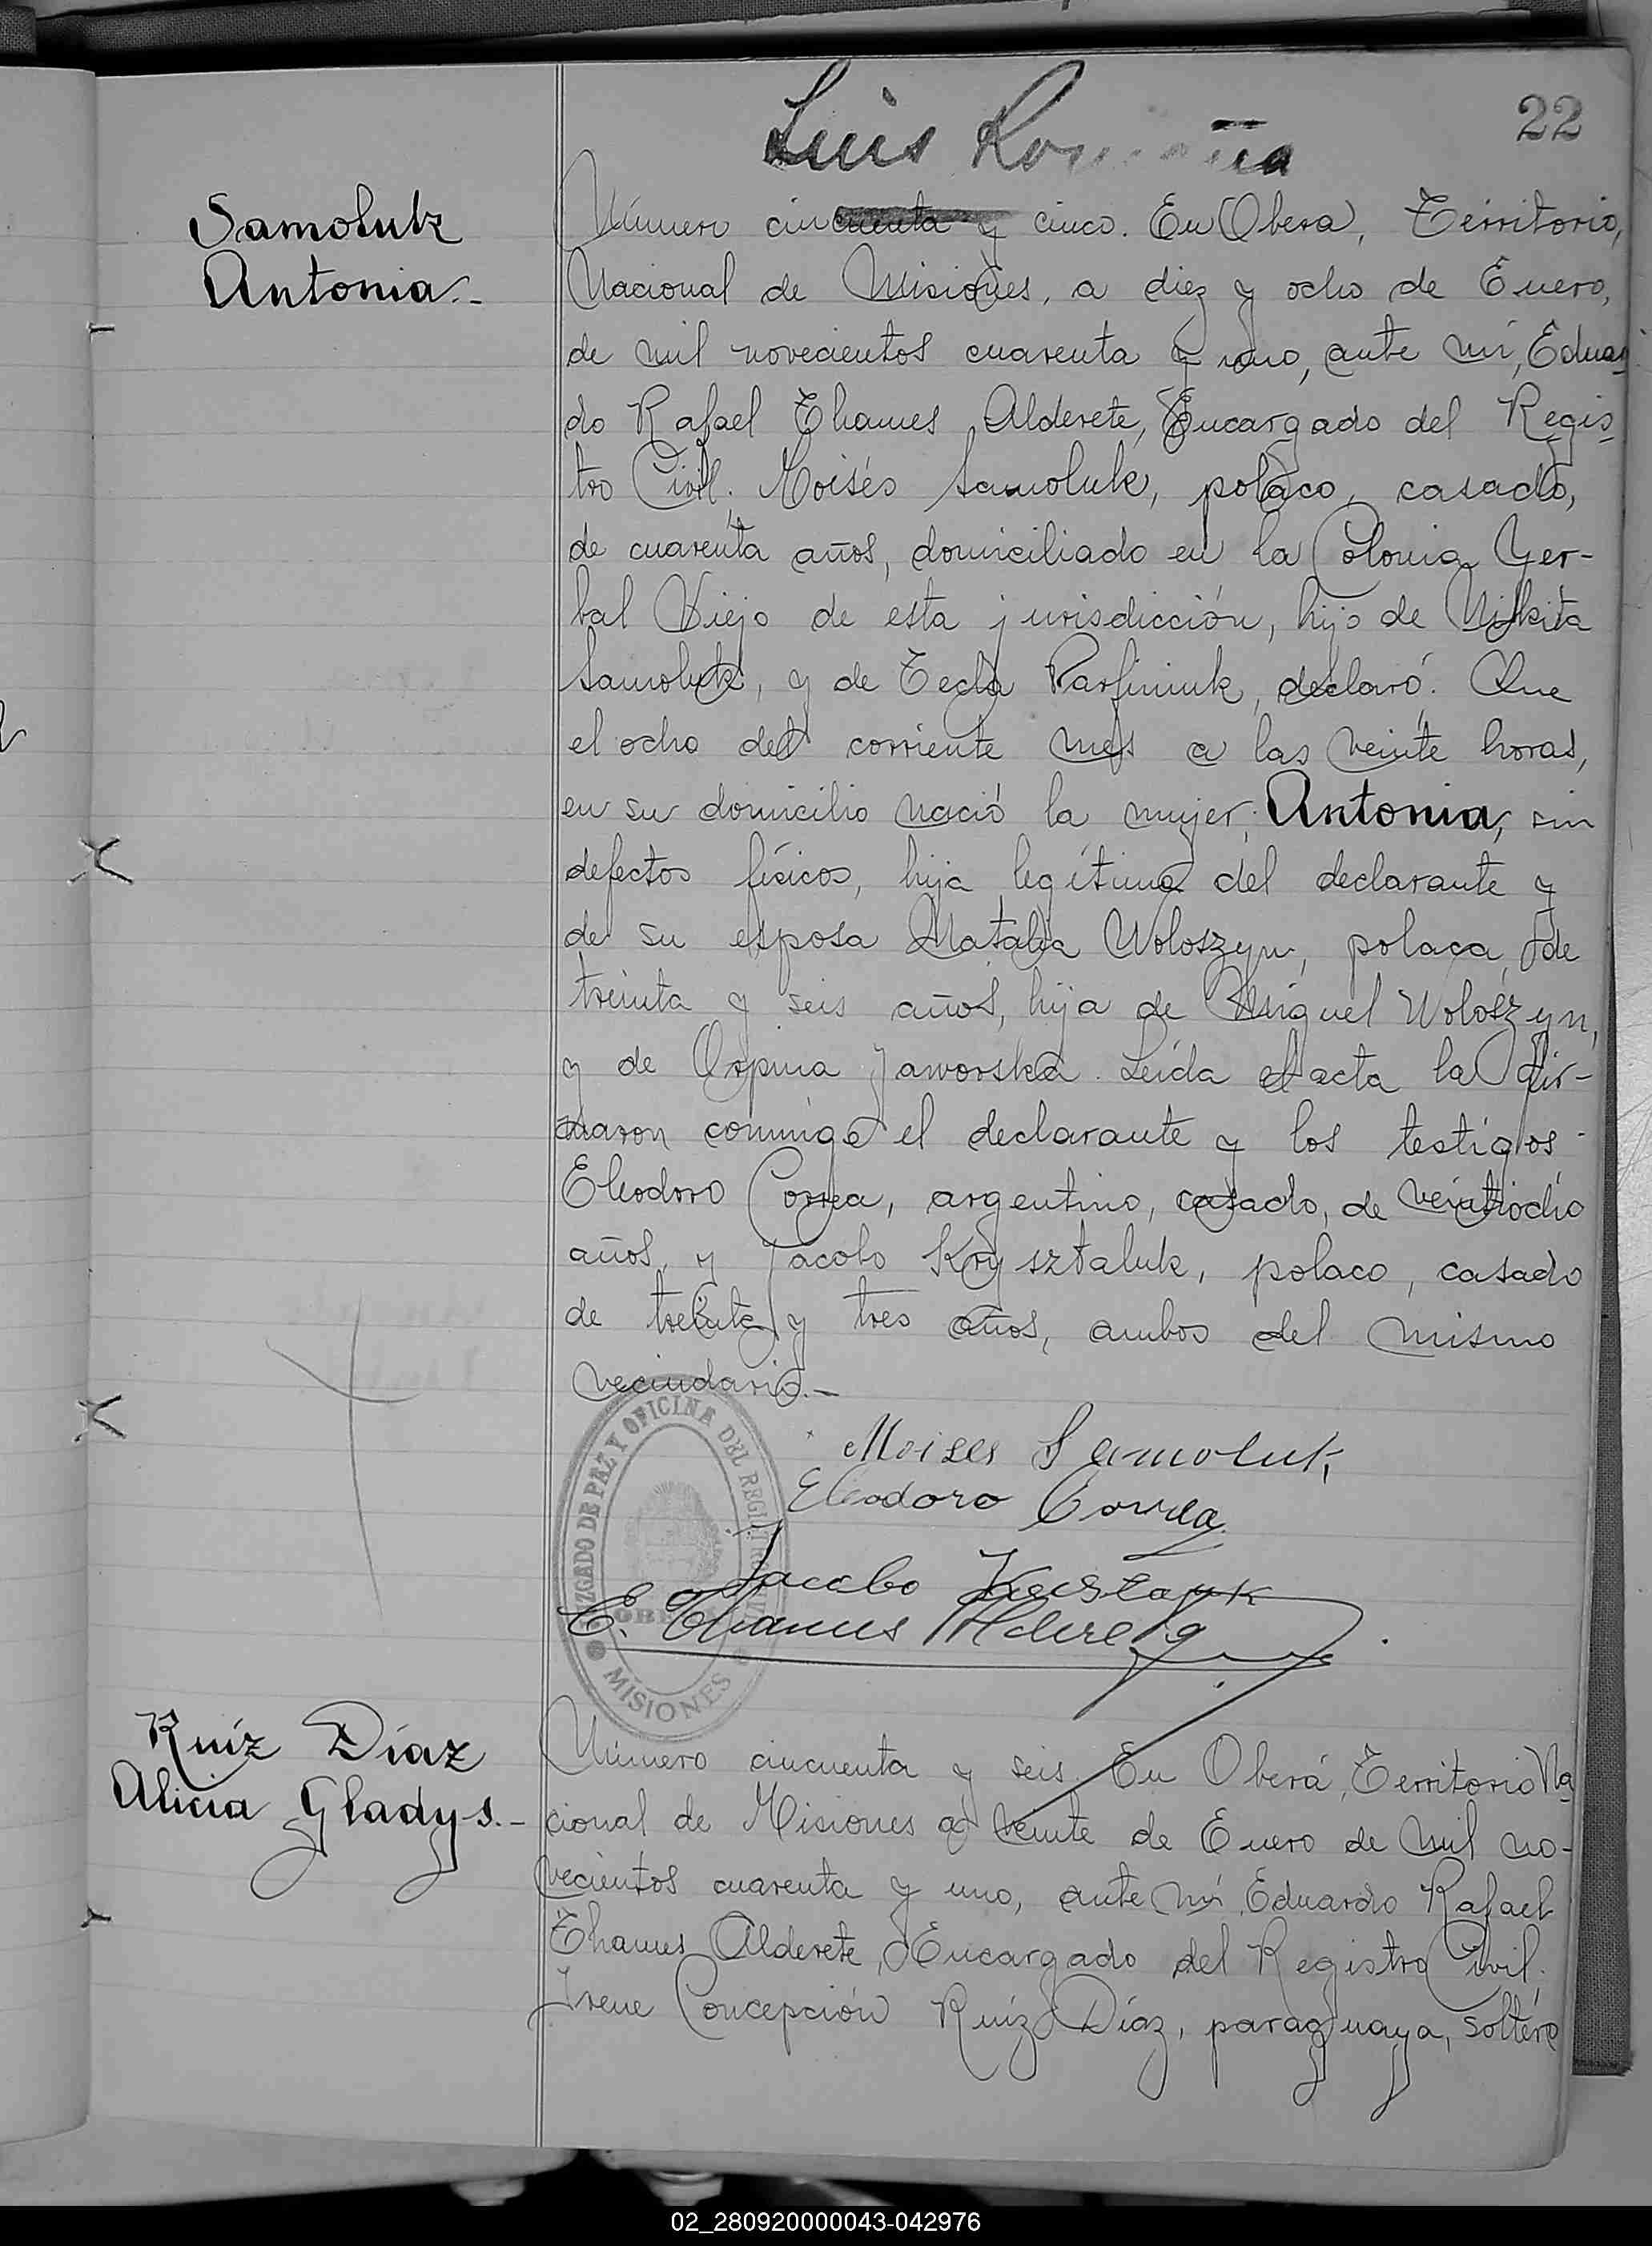 22
Luis
Samoluk
Antonia.-
Número cincuenta y cinco. En Obera, Territorio,
Nacional de Misiones, a diez y ocho de Enero,
de mil novecientos cuarenta y uno, ante mí, Eduar
do Rafael Thames Alderete, Encargado del Regis
tro Civil. Moisés Samoluk, polaco, casado,
de cuarenta años, domiciliado en la Colonia Yer-
bal Viejo de esta jurisdicción, hijo de Nikita
Samoluk, y de Tecla Parfiniuk, declaró: Que
el ocho del corriente mes a las veinte horas,
en su domicilio nació la mujer: Antonia, sin
defectos físicos, hija legítima del declarante y
de su esposa Natalia Woloszyn, polaca, de
treinta y seis años, hija de Miguel Woloszyn,
y de Jaworska. Leída el acta la fir-
maron conmigo el declarante y los testigos
Eleodoro Correa, argentino, casado, de veintiocho
años, y Jacobo Krysztaluk, polaco, casado
de treinta y tres años, ambos del mismo
vecindario.-
Moises Samoluk,
Eleodoro Correa
Jacobo
E. Thames Alderete
JUZGADO DE PAZ Y OFICINA DEL REGISTRO CIVIL
OBERA
MISIONES
Ruíz Díaz
Alicia Gladys.-
Número cincuenta y seis. En Oberá, Territorio Na
cional de Misiones a veinte de Enero de mil no-
vecientos cuarenta y uno, ante mí, Eduardo Rafael
Thames Alderete, Encargado del Registro Civil.
Irene Concepción Ruíz Díaz, paraguaya, soltera
02_280920000043-042976